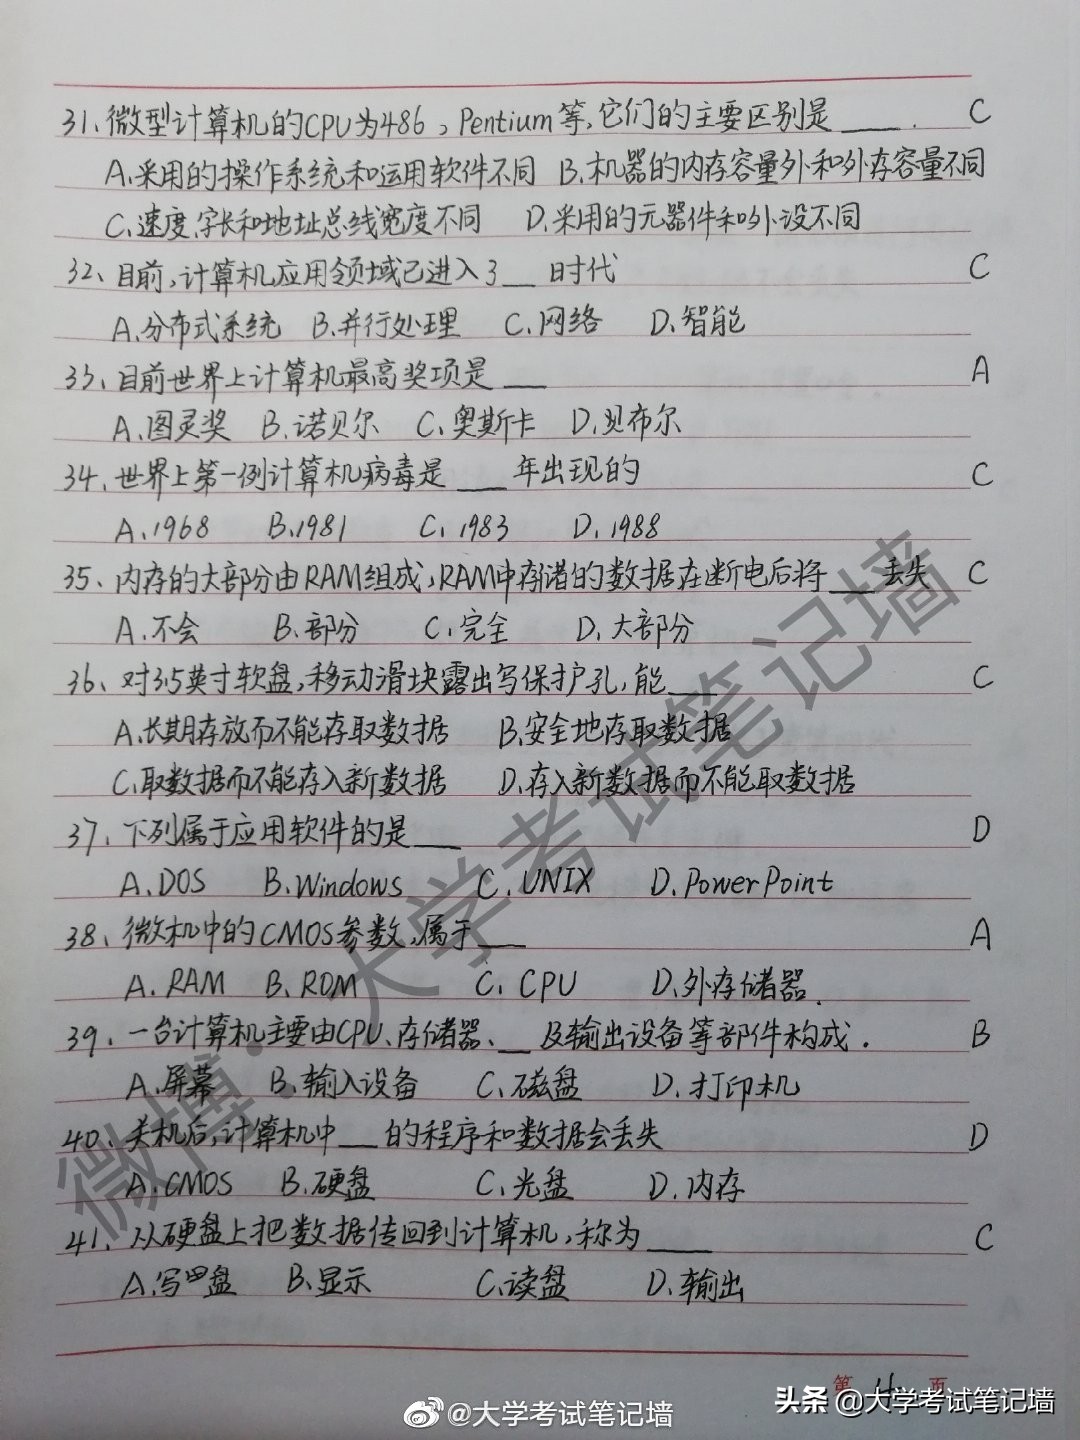 31、微型计算机的CPU为486，Pentium等,它们的主要区别是____. C
A.采用的操作系统和运用软件不同 B.机器的内存容量外和外存容量不同
C.速度、字长和地址总线宽度不同 D.采用的元器件和外设不同
32、目前,计算机应用领域已进入3__时代 C
A.分布式系统 B.并行处理 C.网络 D.智能
33、目前世界上计算机最高奖项是___ A
A.图灵奖 B.诺贝尔 C.奥斯卡 D.贝布尔
34、世界上第一例计算机病毒是___年出现的 C
A.1968 B.1981 C.1983 D.1988
35、内存的大部分由RAM组成,RAM中存储的数据在断电后将___丢失 C
A.不会 B.部分 C.完全 D.大部分
36、对3.5英寸软盘,移动滑块露出写保护孔,能___ C
A.长期存放而不能存取数据 B.安全地存取数据
C.取数据而不能存入新数据 D.存入新数据而不能取数据
37、下列属于应用软件的是___ D
A.DOS B.Windows C.UNIX D.PowerPoint
38、微机中的CMOS参数,属于___ A
A.RAM B.ROM C.CPU D.外存储器.
39、一台计算机主要由CPU、存储器、__及输出设备等部件构成. B
A.屏幕 B.输入设备 C.磁盘 D.打印机
40、关机后,计算机中__的程序和数据会丢失 D
A.CMOS B.硬盘 C.光盘 D.内存
41、从硬盘上把数据传回到计算机,称为____ C
A.写盘 B.显示 C.读盘 D.输出
第 4 页
微博:大学考试笔记墙
@大学考试笔记墙
头条 @大学考试笔记墙